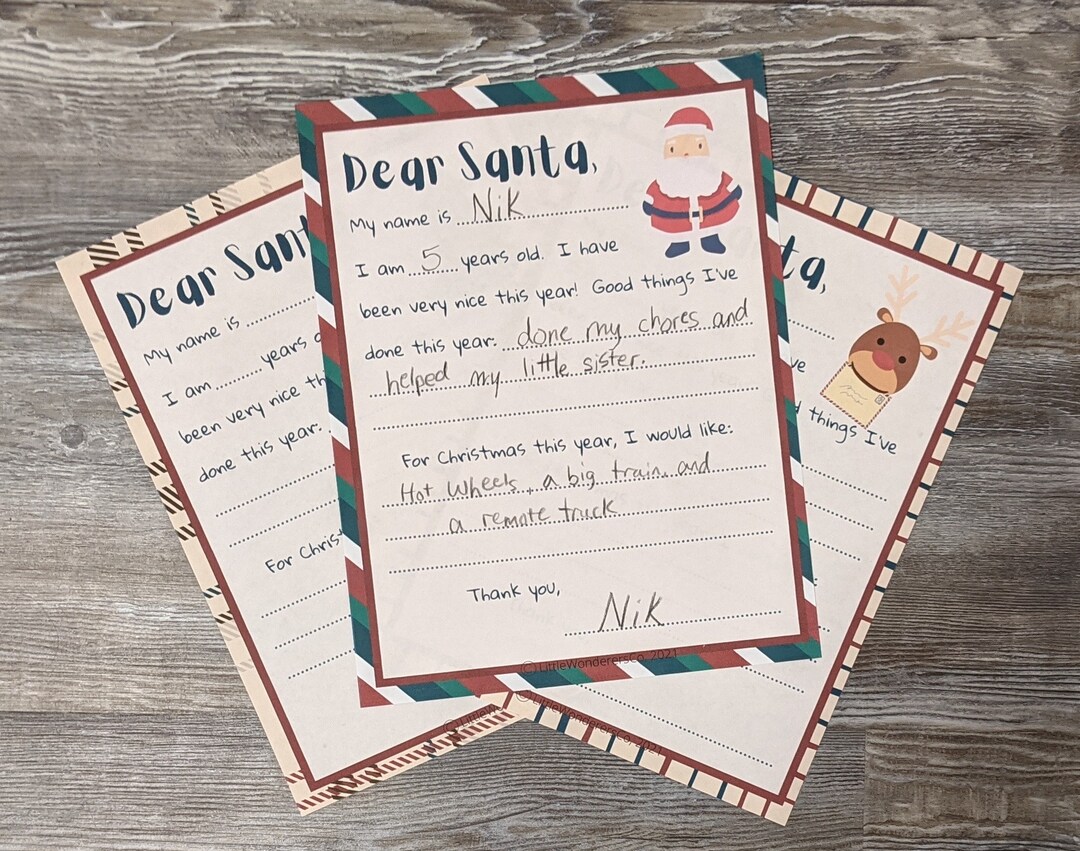 Dear Santa,
My name is Nik
I am 5 years old. I have
been very nice this year! Good things I've
done this year: done my chores and
helped my little sister.
For Christmas this year, I would like:
Hot Wheels, a big train, and
a remote truck
Thank you,
Nik
© LittleWonderersCo. 2021
Dear Sant
My name is
I am years o
been very nice th
done this year:
For Christ
ta,
ve
d things I've
© LittleWonderersCo. 2021